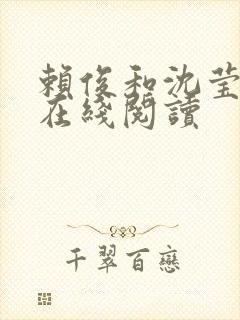 賴俊和沈莹
在綫閱讀
千翠百戀